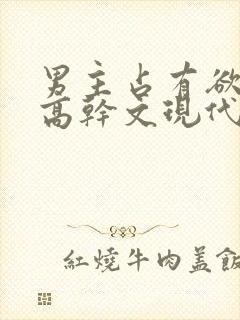 男主占有欲
高幹文現代
紅燒牛肉蓋飯